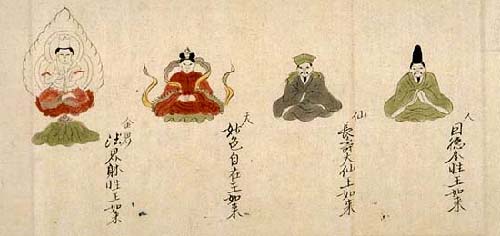 人
徳本性王如来
仙
長壽大仙王如来
天
妙色自在王如来
金界
法界躰性王如来